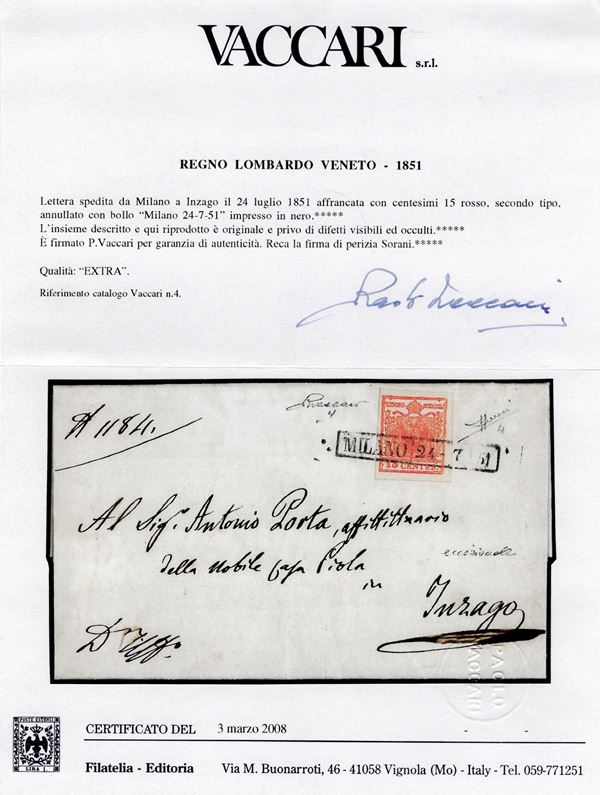 VACCARI s.r.l.
REGNO LOMBARDO VENETO - 1851
Lettera spedita da Milano a Inzago il 24 luglio 1851 affrancata con centesimi 15 rosso, secondo tipo,
annullato con bollo “Milano 24-7-51” impresso in nero.*****
L'insieme descritto e qui riprodotto è originale e privo di difetti visibili ed occulti.*****
È firmato P.Vaccari per garanzia di autenticità. Reca la firma di perizia Sorani.*****
Qualità: “EXTRA”.
Riferimento catalogo Vaccari n.4.
N 1184.
MILANO 24-7 51
15 CENTES.
Al Sigr. Antonio Porta, affittuario
della Nobile Casa Piola
eccezionale
in
Inzago
PAOLO VACCARI
POSTE ESTENSI
LIRA 1
CERTIFICATO DEL 3 marzo 2008 - -
Filatelia - Editoria Via M. Buonarroti, 46 - 41058 Vignola (Mo) - Italy - Tel. 059-771251